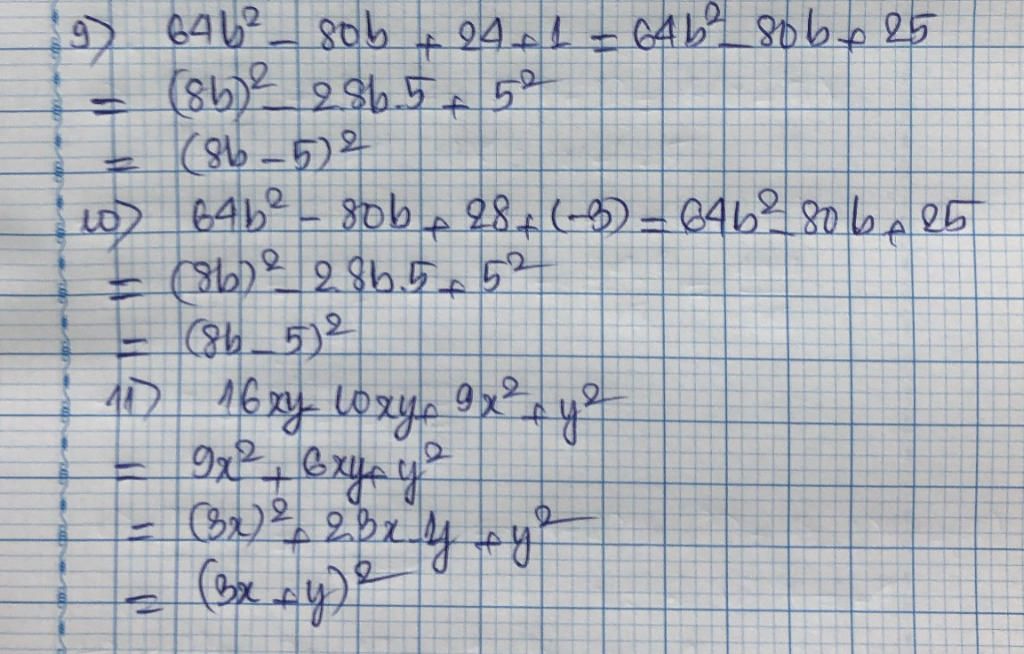 9) 64b² - 80b + 24 + 1 = 64b² - 80b + 25
= (8b)² - 2 8b.5 + 5²
= (8b - 5)²
10) 64b² - 80b + 28 + (-3) = 64b² - 80b + 25
= (8b)² - 2 8b.5 + 5²
= (8b - 5)²
11) 16xy - 10xy + 9x² + y²
= 9x² + 6xy + y²
= (3x)² + 2 3x.y + y²
= (3x + y)²